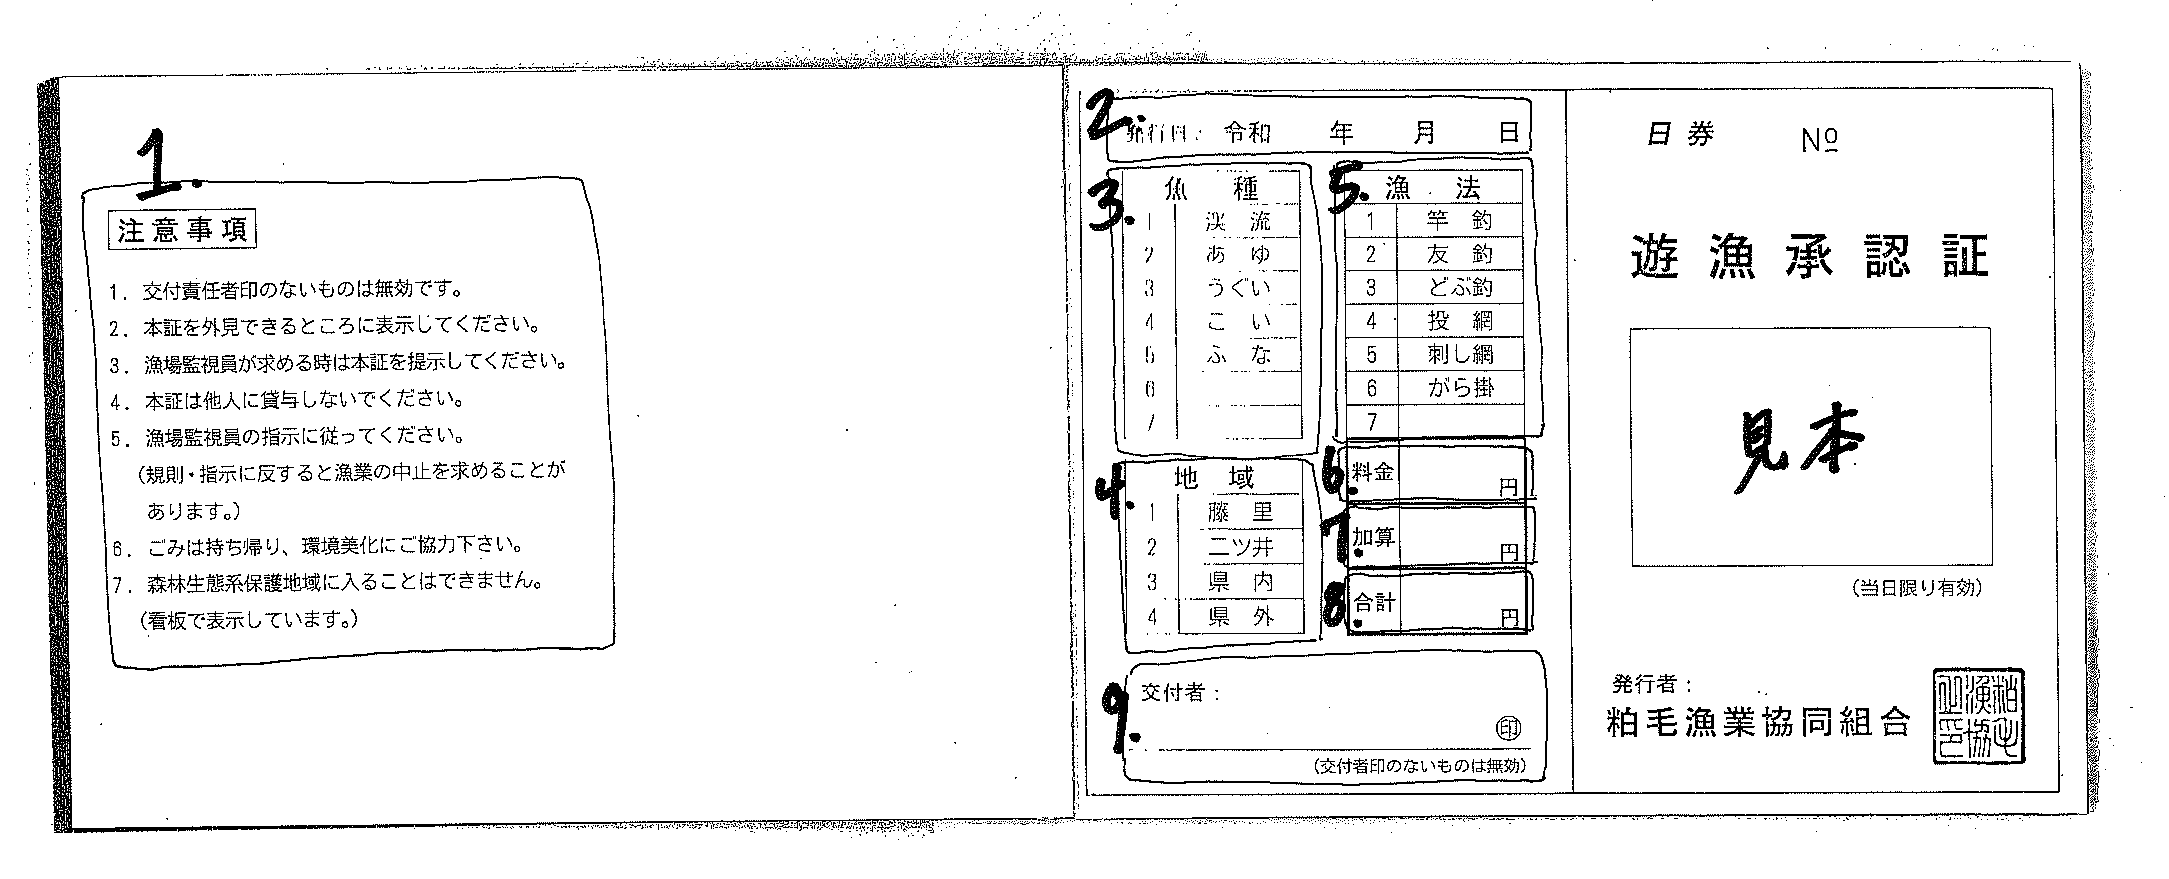 1.
注意事項
1. 交付責任者印のないものは無効です。
2. 本証を外見できるところに表示してください。
3. 漁場監視員が求める時は本証を提示してください。
4. 本証は他人に貸与しないでください。
5. 漁場監視員の指示に従ってください。
(規則・指示に反すると漁業の中止を求めることが
あります。)
6. ごみは持ち帰り、環境美化にご協力下さい。
7. 森林生態系保護地域に入ることはできません。
(看板で表示しています。)
2.
発行日: 令和 年 月 日
3.
魚 種
1 渓 流
2 あ ゆ
3 うぐい
4 こ い
5 ふ な
6
7
4.
地 域
1 藤 里
2 二ツ井
3 県 内
4 県 外
5.
漁 法
1 竿 釣
2 友 釣
3 どぶ釣
4 投 網
5 刺し網
6 がら掛
7
6.
料金 円
7.
加算 円
8.
合計 円
9.
交付者:
印
(交付者印のないものは無効)
日 券 №
遊漁承認証
見本
(当日限り有効)
発行者:
粕毛漁業協同組合